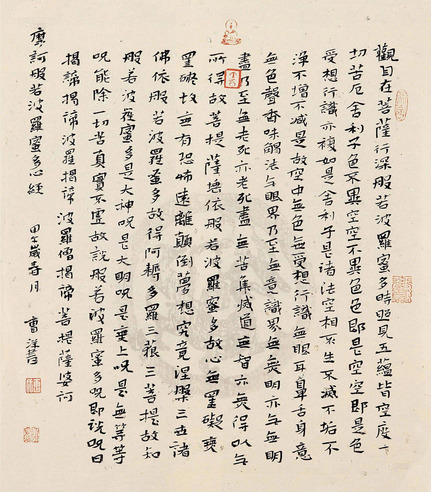 觀自在菩薩行深般若波羅蜜多時照見五蘊皆空度一
切苦厄舍利子色不異空空不異色色即是空空即是色
受想行識亦複如是舍利子是諸法空相不生不滅不垢不
淨不增不減是故空中無色無受想行識無眼耳鼻舌身意
無色聲香味觸法無眼界乃至無意識界無無明亦無無明
盡乃至無老死亦無老死盡無苦集滅道無智亦無得以無
所得故菩提薩埵依般若波羅蜜多故心無罣礙無
罣礙故無有恐怖遠離顛倒夢想究竟涅槃三世諸
佛依般若波羅蜜多故得阿耨多羅三藐三菩提故知
般若波羅蜜多是大神咒是大明咒是無上咒是無等等
咒能除一切苦真實不虛故說般若波羅蜜多咒即說咒曰
揭諦揭諦波羅揭諦波羅僧揭諦菩提薩婆訶
摩訶般若波羅蜜多心經 甲午歲 月 曹洋